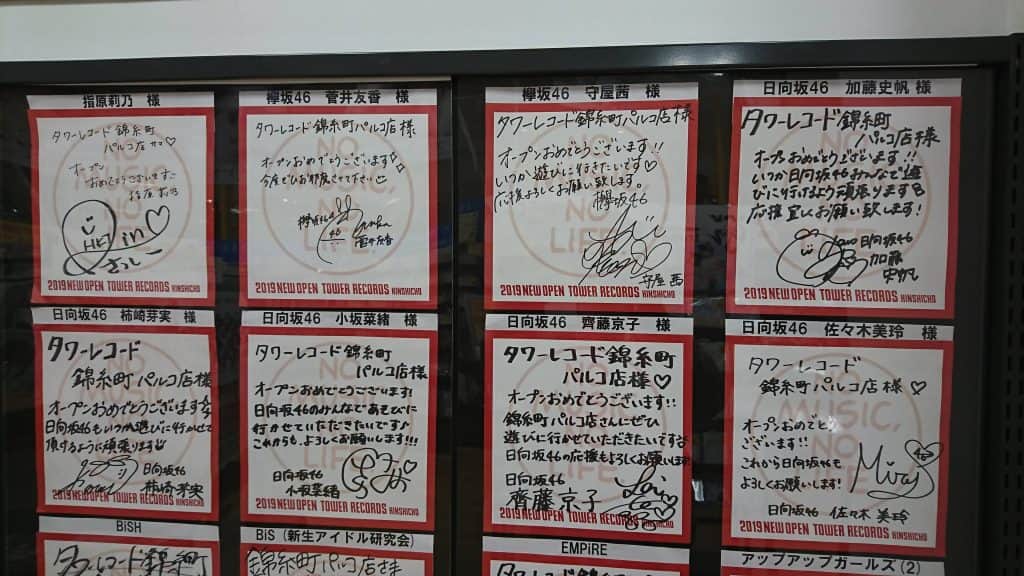 指原莉乃 様
タワーレコード錦糸町
パルコ店サマ♡
オープン
おめでとうございます
指原莉乃
2019 NEW OPEN TOWER RECORDS KINSHICHO
欅坂46 菅井友香 様
タワーレコード錦糸町パルコ店様
オープンおめでとうございます!
今度ぜひお邪魔させて下さい
欅坂46
菅井友香
2019 NEW OPEN TOWER RECORDS KINSHICHO
欅坂46 守屋茜 様
タワーレコード錦糸町パルコ店様
オープンおめでとうございます!
いつか遊びに行きたいです♡
応援よろしくお願い致します。
欅坂46
守屋茜
2019 NEW OPEN TOWER RECORDS KINSHICHO
日向坂46 加藤史帆 様
タワーレコード錦糸町
パルコ店様
オープンおめでとうございます!!
いつか日向坂46みんなで遊
びに行けるよう頑張ります
応援宜しくお願い致します!
日向坂46
加藤
史帆
2019 NEW OPEN TOWER RECORDS KINSHICHO
日向坂46 柿崎芽実 様
タワーレコード
錦糸町パルコ店様
オープンおめでとうございます
日向坂46もいつか遊びに行かせて
頂けるように頑張ります
日向坂46
柿崎芽実
2019 NEW OPEN TOWER RECORDS KINSHICHO
日向坂46 小坂菜緒 様
タワーレコード錦糸町
パルコ店様
オープンおめでとうございます!
日向坂46のみんなであそびに
行かせていただきたいです♪
これからも、よろしくお願いします!!!
日向坂46
小坂菜緒
2019 NEW OPEN TOWER RECORDS KINSHICHO
日向坂46 齊藤京子 様
タワーレコード錦糸町
パルコ店様♡
オープンおめでとうございます!!
錦糸町パルコ店さんにぜひ
遊びに行かせていただきたいです
日向坂46の応援もよろしくお願います
日向坂46
齊藤京子
2019 NEW OPEN TOWER RECORDS KINSHICHO
日向坂46 佐々木美玲 様
タワーレコード
錦糸町パルコ店様♡
オープンおめでとう
ございます!!
これから日向坂46も
よろしくお願いします!
日向坂46 佐々木美玲
2019 NEW OPEN TOWER RECORDS KINSHICHO
BiSH
タワーレコード錦糸町
BiS (新生アイドル研究会)
錦糸町パルコ店さま
EMPiRE
タワーレコード錦糸町
アップアップガールズ(2)